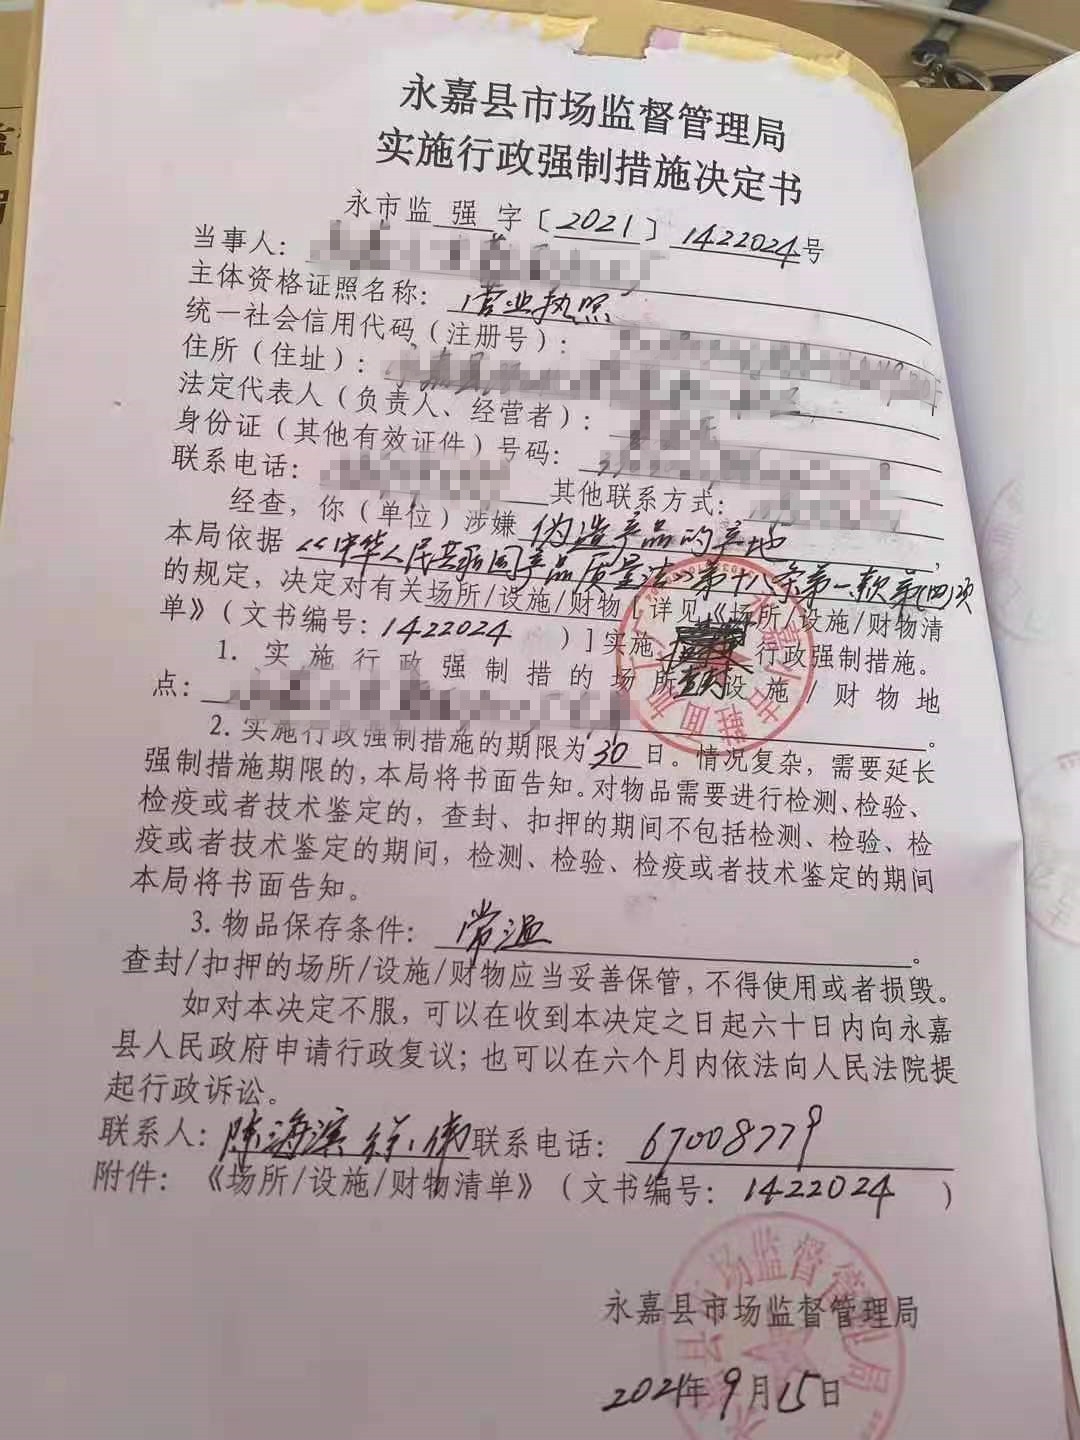 永嘉县市场监督管理局
实施行政强制措施决定书
永市监 强 字〔2021〕1422024号
当事人：
主体资格证照名称：营业执照
统一社会信用代码（注册号）：
住所（住址）：
法定代表人（负责人、经营者）：
身份证（其他有效证件）号码：
联系电话： 其他联系方式：
经查，你（单位）涉嫌 伪造产品的产地 ，
本局依据《中华人民共和国产品质量法》第十八条第一款第(四)项
的规定，决定对有关场所/设施/财物［详见《场所/设施/财物清
单》（文书编号：1422024 ）］实施 查封 行政强制措施。
1. 实施行政强制措的场所/设施/财物地
点： 。
2. 实施行政强制措施的期限为30日。情况复杂，需要延长
强制措施期限的，本局将书面告知。对物品需要进行检测、检验、
检疫或者技术鉴定的，查封、扣押的期间不包括检测、检验、检
疫或者技术鉴定的期间，检测、检验、检疫或者技术鉴定的期间
本局将书面告知。
3. 物品保存条件： 常温 。
查封/扣押的场所/设施/财物应当妥善保管，不得使用或者损毁。
如对本决定不服，可以在收到本决定之日起六十日内向永嘉
县人民政府申请行政复议；也可以在六个月内依法向人民法院提
起行政诉讼。
联系人：陈海滨 联系电话：67008779
附件：《场所/设施/财物清单》（文书编号：1422024 ）
永嘉县市场监督管理局
2021年9月15日